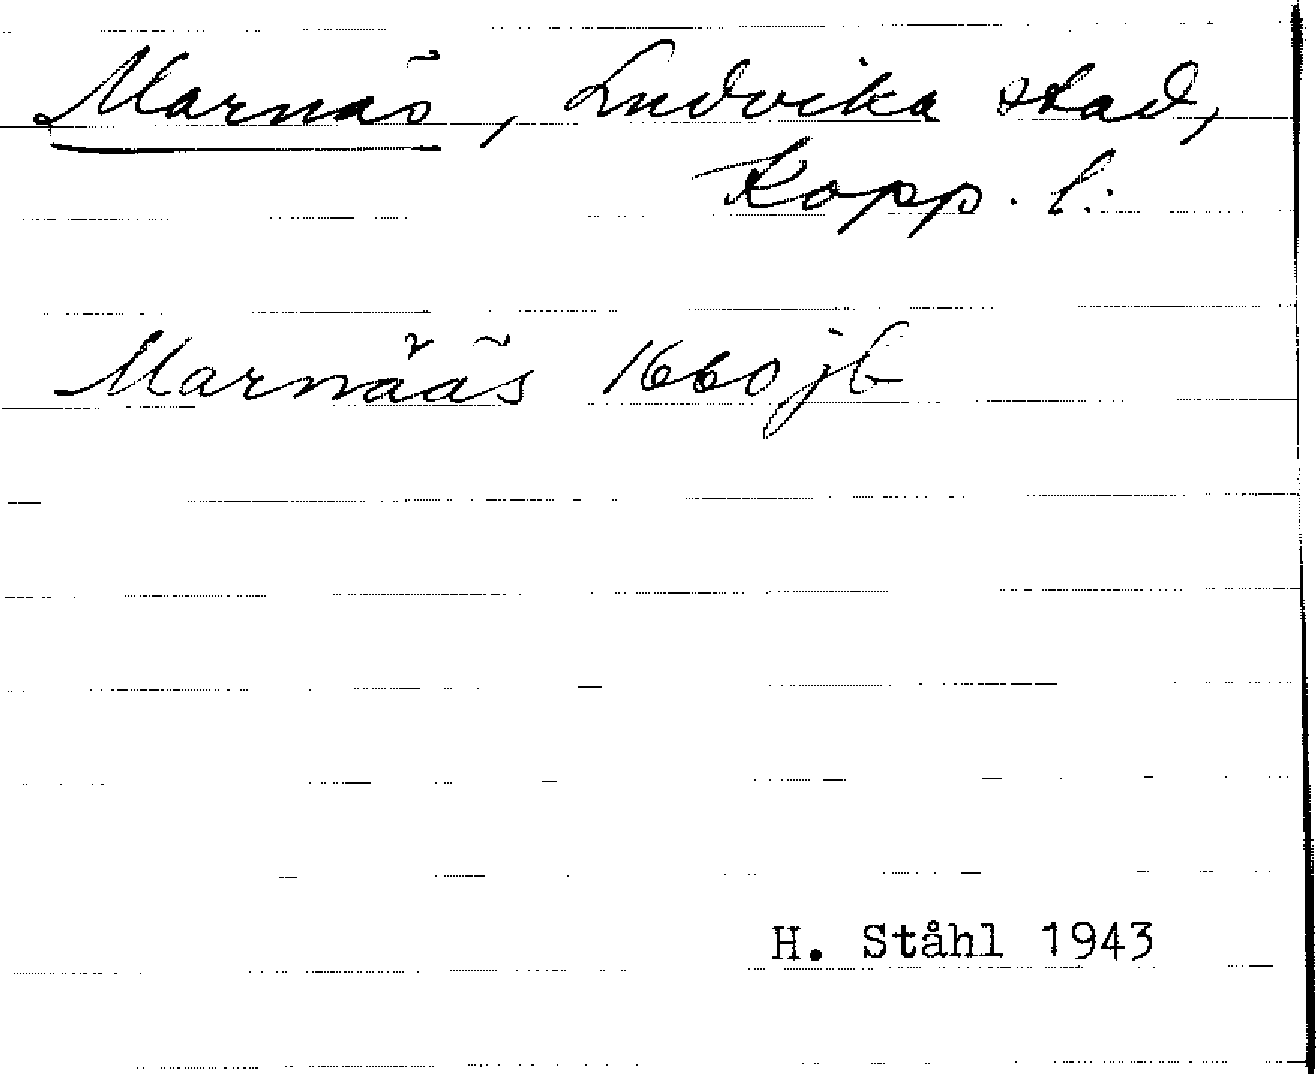 Marnäs, Ludvika stad,
Kopp. l.
Marnääs 1660 jb
H. Ståhl 1943